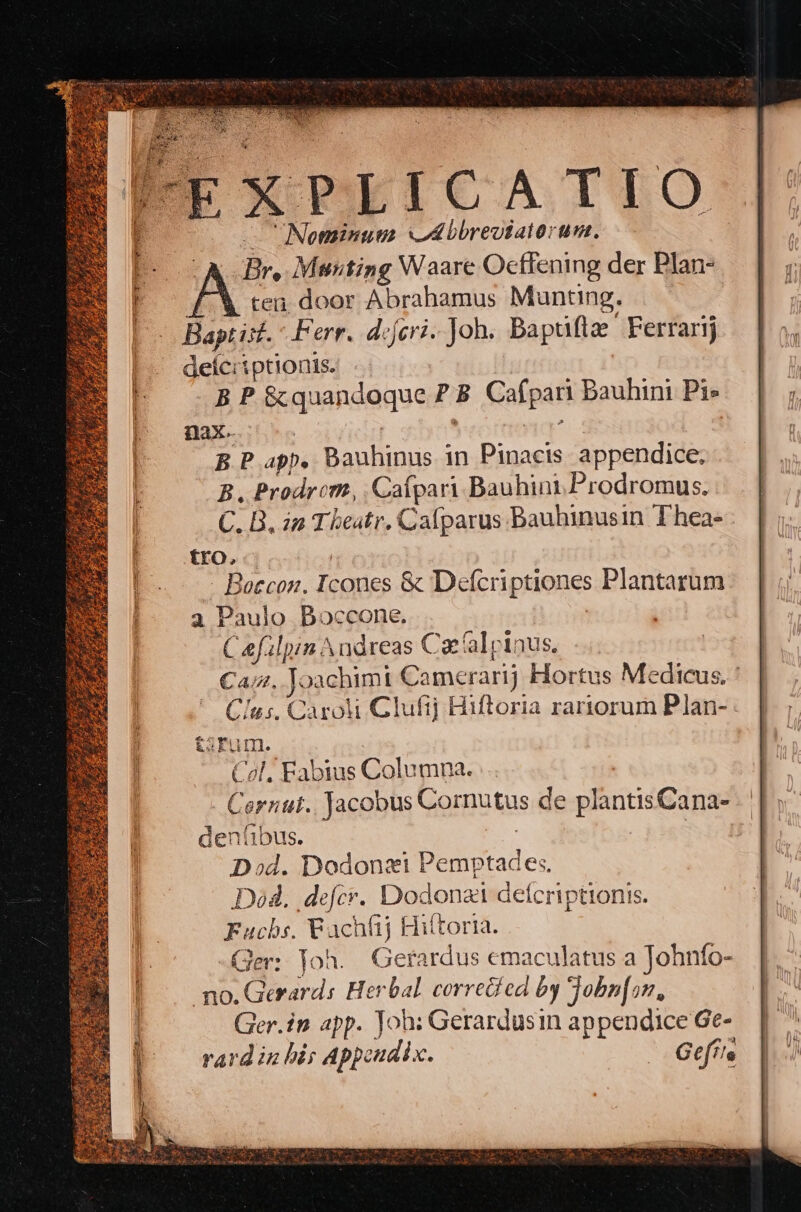 EXPLICATIO
Nominum Abbreviatorum.
ABr. Munting Waare Oeffening der Plan-
ten door Abrahamus Munting.
Baptist. Ferr. descri. Joh. Baptistæ Ferrarij
descriptionis.
B P & quandoque P B Caſpari Bauhini Pi-
nax.
B P app. Bauhinus in Pinacis appendice.
B. Prodrom, Caſpari Bauhini Prodromus.
C. B. in Theatr. Caſparus Bauhinus in Thea-
tro.
Boccon. Icones & Deſcriptiones Plantarum
a Paulo Boccone.
Cæſalpin Andreas Cæſalpinus.
Cam. Joachimi Camerarij Hortus Medicus.
Clus. Caroli Cluſij Hiſtoria rariorum Plan-
tarum.
Col. Fabius Columna.
Cornut. Jacobus Cornutus de plantis Cana-
denſibus.
Dod. Dodonæi Pemptades.
Dod. deſcr. Dodonæi deſcriptionis.
Fuchs. Fuchſij Hiſtoria.
Ger: Joh. Gerardus emaculatus a Johnſo-
no. Gerards Herbal corrected by Johnſon,
Ger. in app. Joh: Gerardus in appendice Ge-
rard in his Appendix.
Geſne